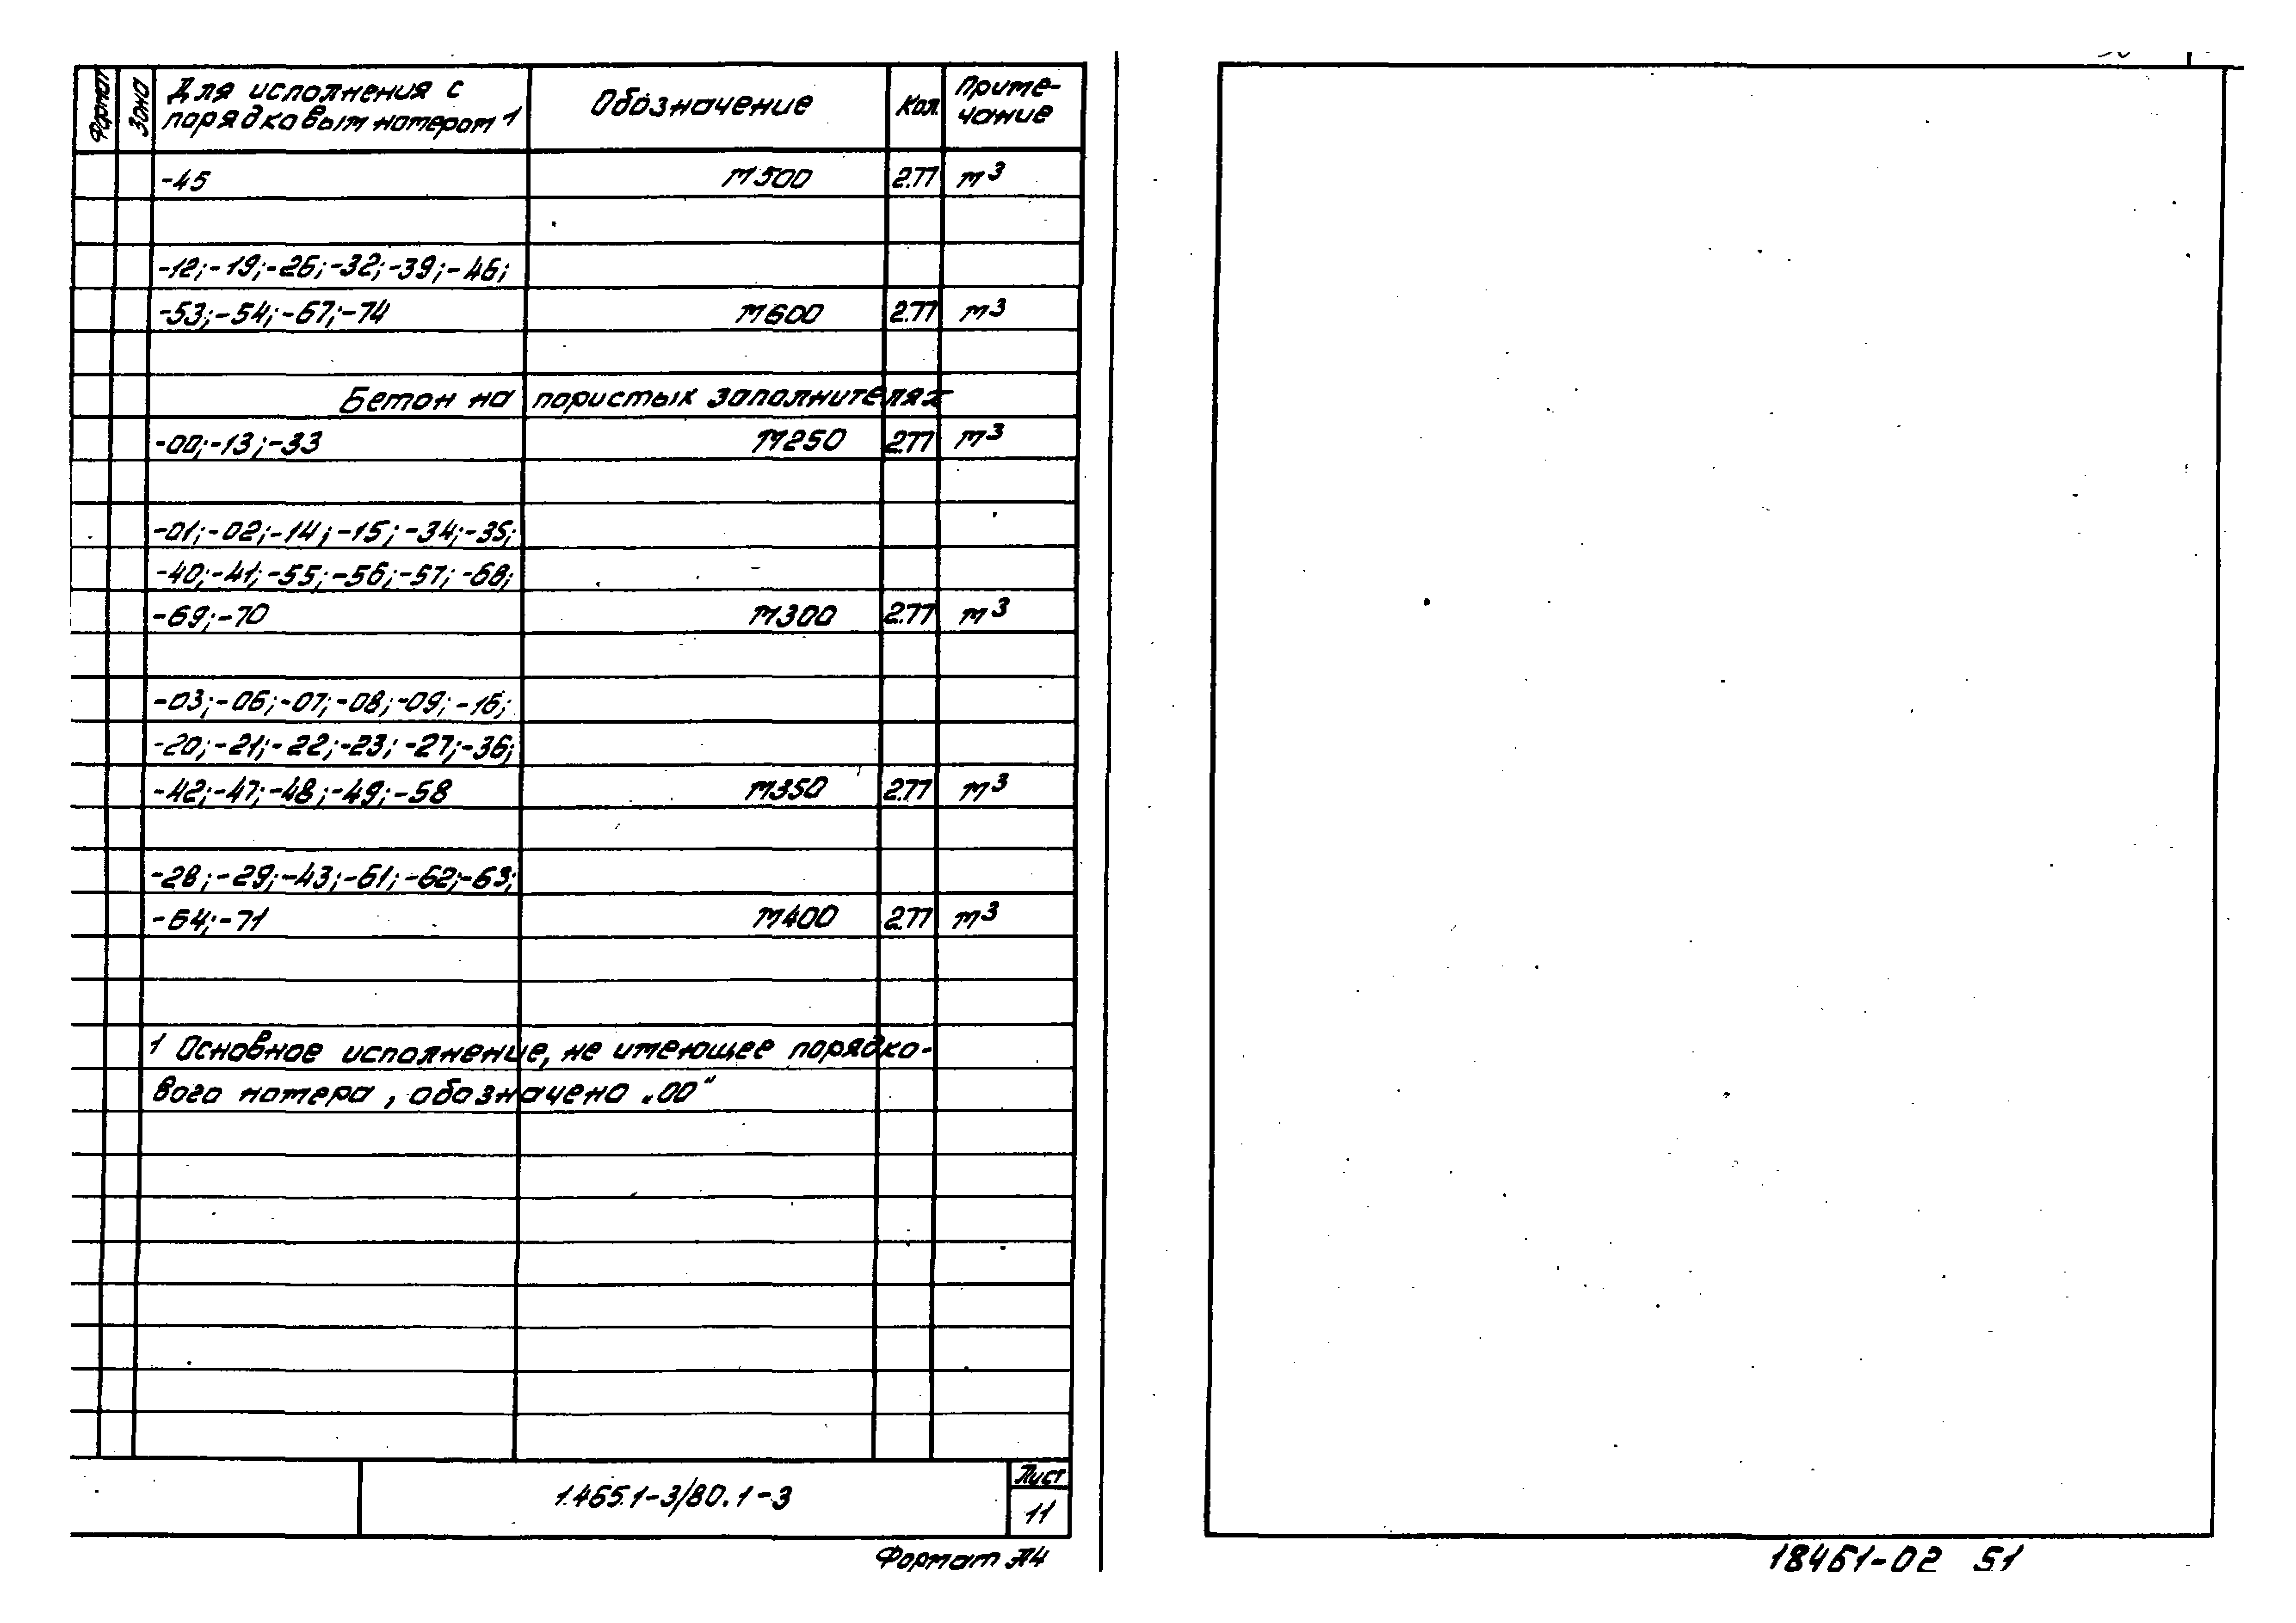 Формат
Зона
Для исполнения с
порядковым номером 1
Обозначение
Кол.
Приме-
чание
-45 М500 2.77 м³
-12;-19;-26;-32;-39;-46;
-53;-54;-67;-74 М600 2.77 м³
Бетон на пористых заполнителях
-00;-13;-33 М250 2.77 м³
-01;-02;-14;-15;-34;-35;
-40;-41;-55;-56;-57;-68;
-69;-70 М300 2.77 м³
-03;-06;-07;-08;-09;-16;
-20;-21;-22;-23;-27;-36;
-42;-47;-48;-49;-58 М350 2.77 м³
-28;-29;-43;-61;-62;-63;
-64;-71 М400 2.77 м³
1 Основное исполнение, не имеющее порядко-
вого номера, обозначено „00"
1.465.1-3/80.1-3
Лист
11
Формат А4
18461-02 51